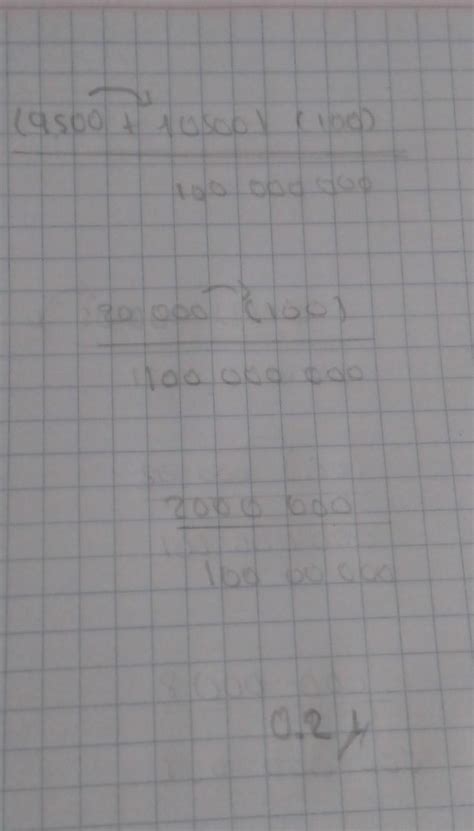 (9500 + 10500) (100)
100 000 000
20 000 (100)
100 000 000
2000 000
100 00 000
0.2 μ